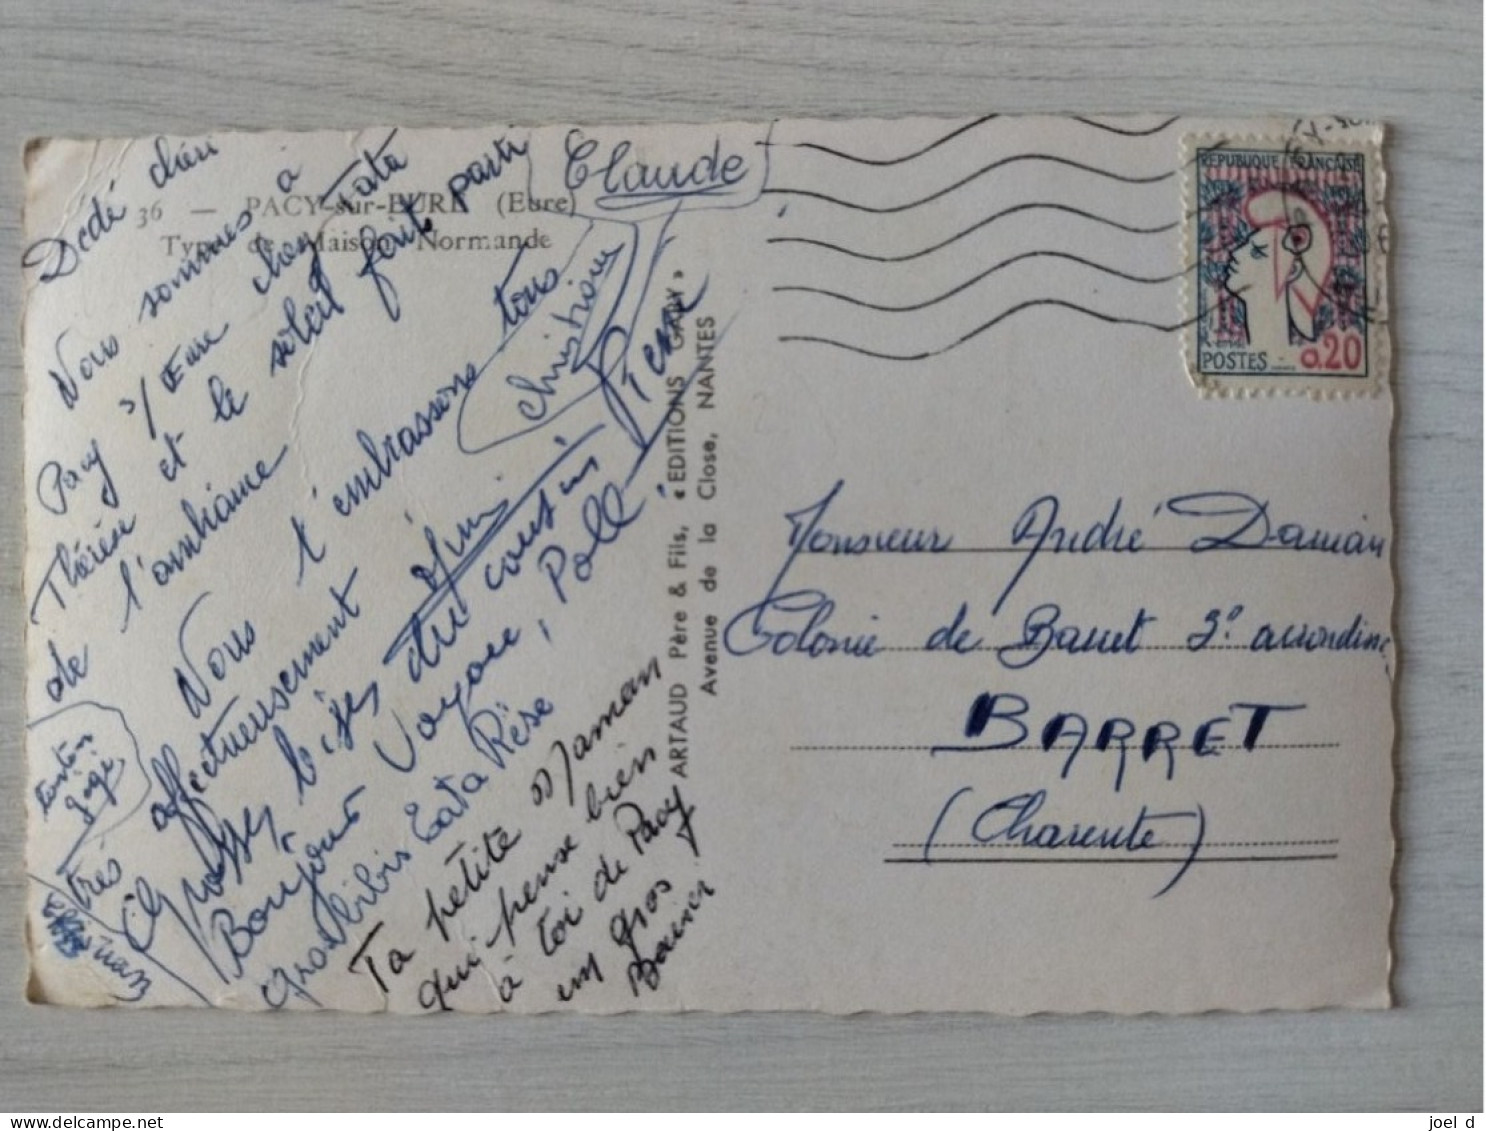 36 — PACY-sur-EURE (Eure)
Type de Maison Normande
Dédé chéri
Nous sommes à
Pacy s/ Eure chez Tata
Thérèse et le soleil fait parti
de l'ambiance
Nous t'embrassons tous
très affectueusement
Claude
Christiane
tonton
gigi
Grosses bises du cousin Pierre
Bonjour Voyou, Poll
gros bibis Tata Rése
Ta petite Maman
qui pense bien
à toi de Pacy
un gros
Baiser
ARTAUD Père & Fils, « EDITIONS GABY »
Avenue de la Close, NANTES
REPUBLIQUE FRANÇAISE
POSTES 0.20
Monsieur André Damian
Colonie de Barret 2° arrondiss
BARRET
(Charente)
joel d